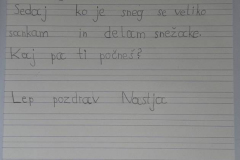 Sedaj ko je sneg se veliko
sankam in delam snežake.
Kaj pa ti počneš?
Lep pozdrav Nastja